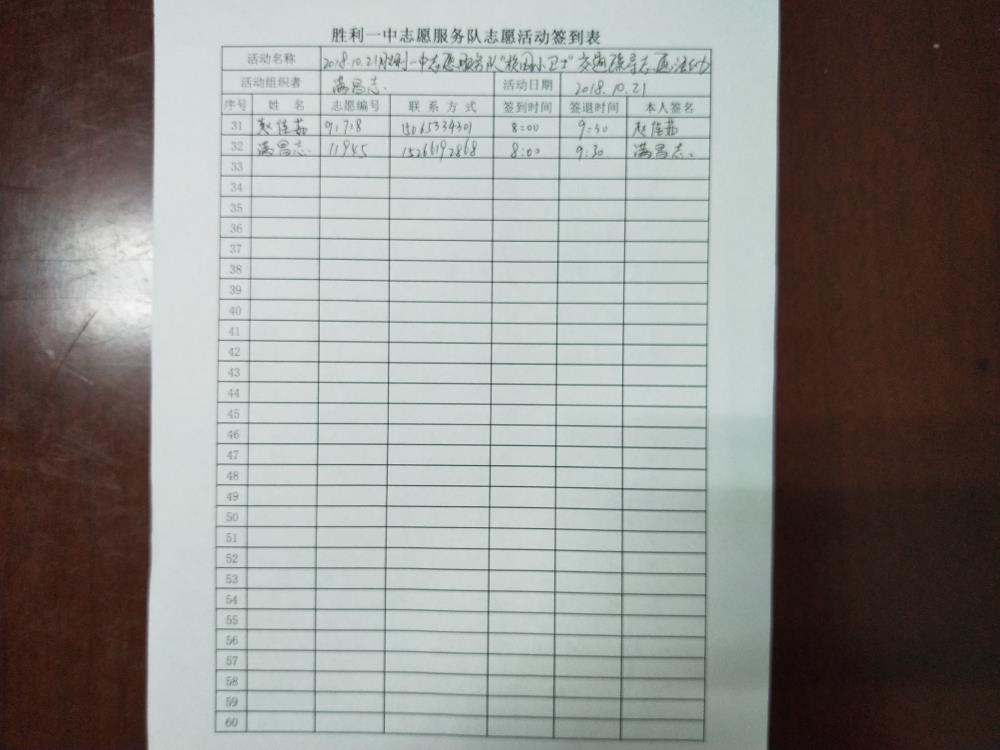 胜利一中志愿服务队志愿活动签到表
活动名称 2018.10.21胜利一中志愿服务队"校园小卫士"交通疏导志愿活动
活动组织者 满昌志 活动日期 2018.10.21
序号 姓名 志愿编号 联系方式 签到时间 签退时间 本人签名
31 赵佳茹 15065334301 8:00 9:30 赵佳茹
32 满昌志 11945 15266192868 8:00 9:30 满昌志
33
34
35
36
37
38
39
40
41
42
43
44
45
46
47
48
49
50
51
52
53
54
55
56
57
58
59
60